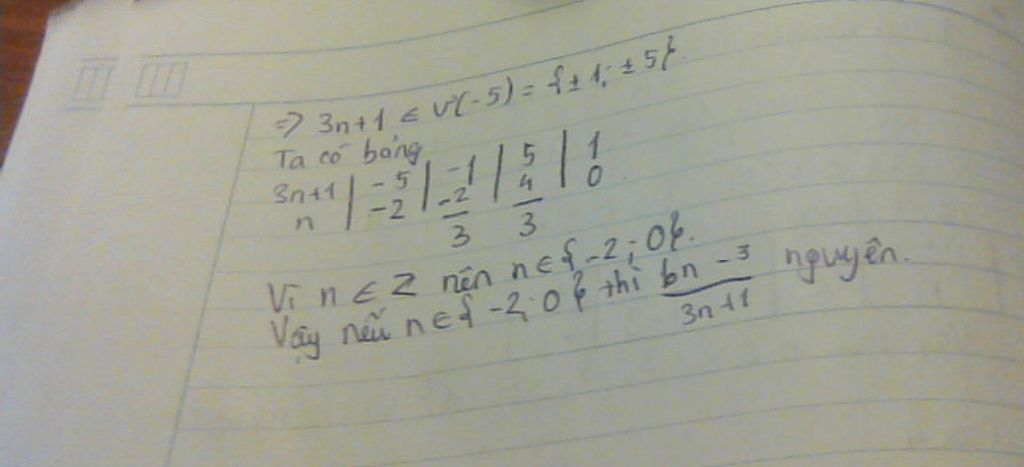 => 3n+1 ∈ Ư(-5) = {±1; ±5}.
Ta có bảng
3n+1 | -5 | -1 | 5 | 1
n | -2 | -2/3 | 4/3 | 0
Vì n ∈ Z nên n ∈ {-2; 0}.
Vậy nếu n ∈ {-2; 0} thì 6n-3/3n+1 nguyên.